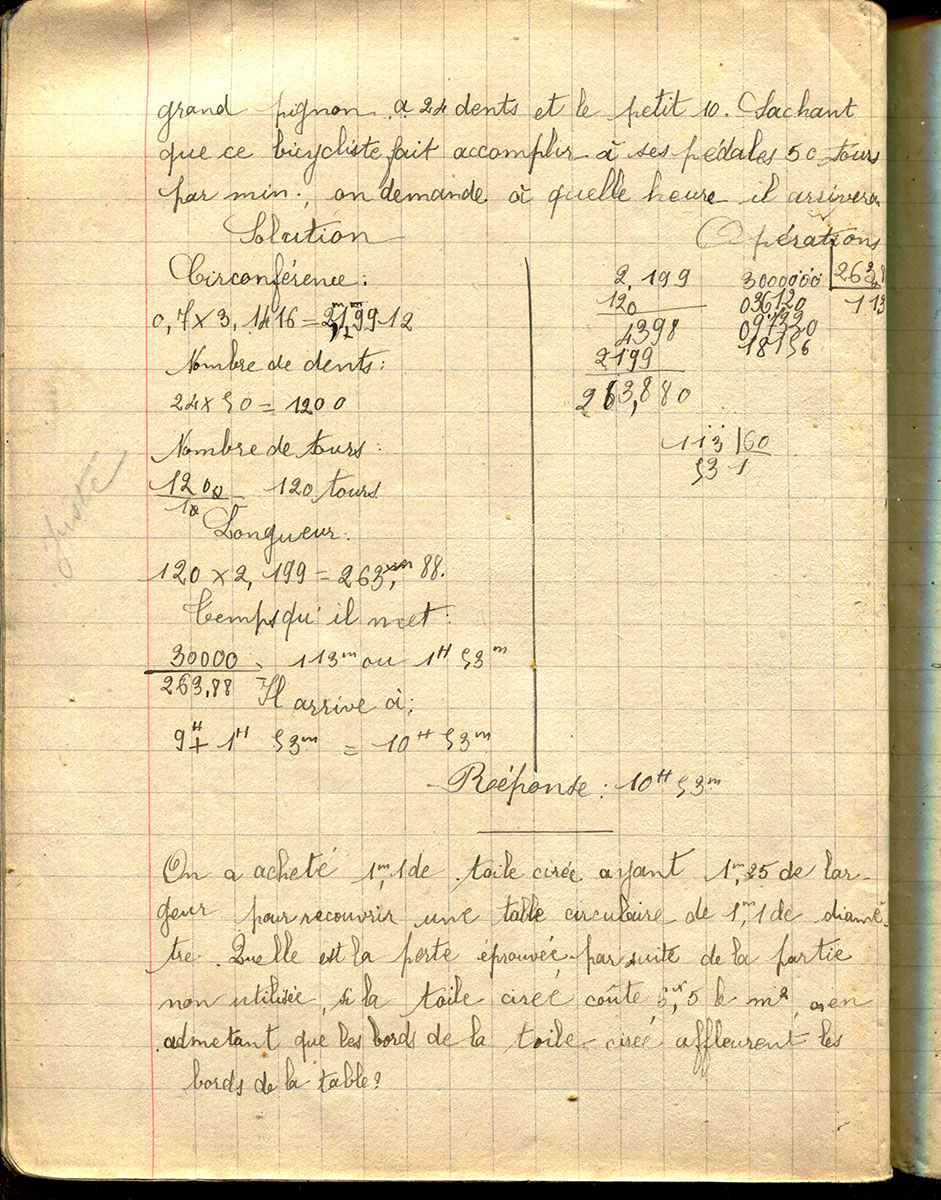 grand pignon a 24 dents et le petit 10. Sachant
que ce bicycliste fait accomplir à ses pédales 50 tours
par min., on demande à quelle heure il arrivera
Solution
Circonférence :
0,7 x 3,1416 = 2,19912
Nombre de dents :
24 x 50 = 1200
Nombre de tours :
1200 120 tours
10
Longueur :
120 x 2,199 = 263,m 88.
Temps qu'il met :
30000 113m ou 1H 53m
263,88
Il arrive à :
9H + 1H 53m = 10H 53m
juste
Opérations
2,199
120
4398
2199
263,880
3000000 263,8
036120 113
097320
18156
113 60
53 1
Réponse : 10H 53m
On a acheté 1m,1 de toile cirée ayant 1m,25 de lar-
geur pour recouvrir une table circulaire de 1m,1 de diamè-
tre. Quelle est la perte éprouvée par suite de la partie
non utilisée, si la toile cirée coûte 5 le m2, en
admetant que les bords de la toile cirée affleurent les
bords de la table ?